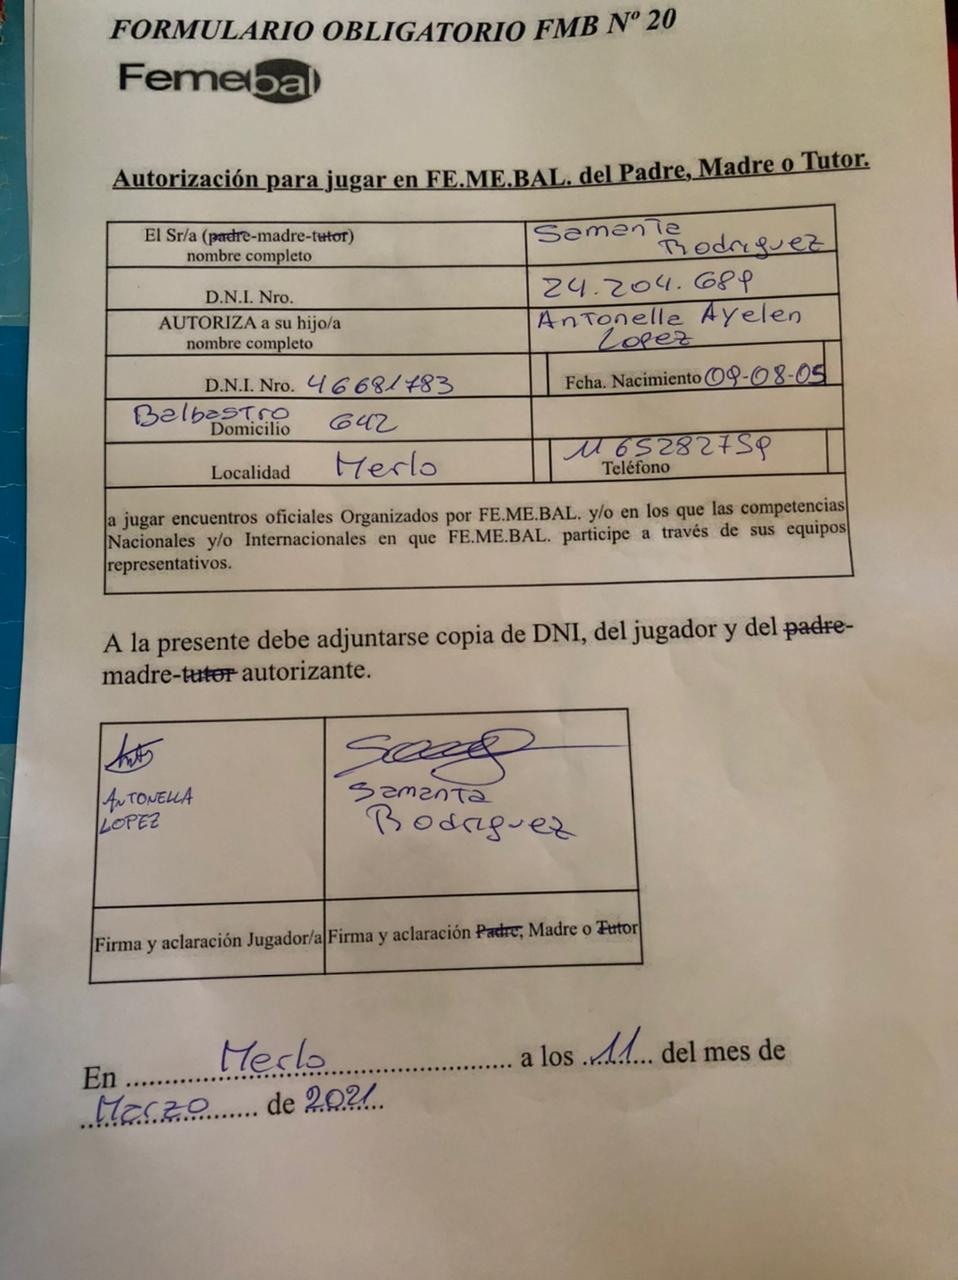 FORMULARIO OBLIGATORIO FMB Nº 20
Femebal
Autorización para jugar en FE.ME.BAL. del Padre, Madre o Tutor.
El Sr/a (padre-madre-tutor)
nombre completo
Samanta
Rodriguez
D.N.I. Nro.
24.204.689
AUTORIZA a su hijo/a
nombre completo
Antonella Ayelen
Lopez
D.N.I. Nro. 46681783
Fcha. Nacimiento 09-08-05
Balbastro 642
Domicilio
Localidad Merlo
11 65282759
Teléfono
a jugar encuentros oficiales Organizados por FE.ME.BAL. y/o en los que las competencias
Nacionales y/o Internacionales en que FE.ME.BAL. participe a través de sus equipos
representativos.
A la presente debe adjuntarse copia de DNI, del jugador y del padre-
madre-tutor autorizante.
ANTONELLA
LOPEZ
Samanta
Rodriguez
Firma y aclaración Jugador/a
Firma y aclaración Padre, Madre o Tutor
En Merlo a los 11 del mes de
Marzo de 2021